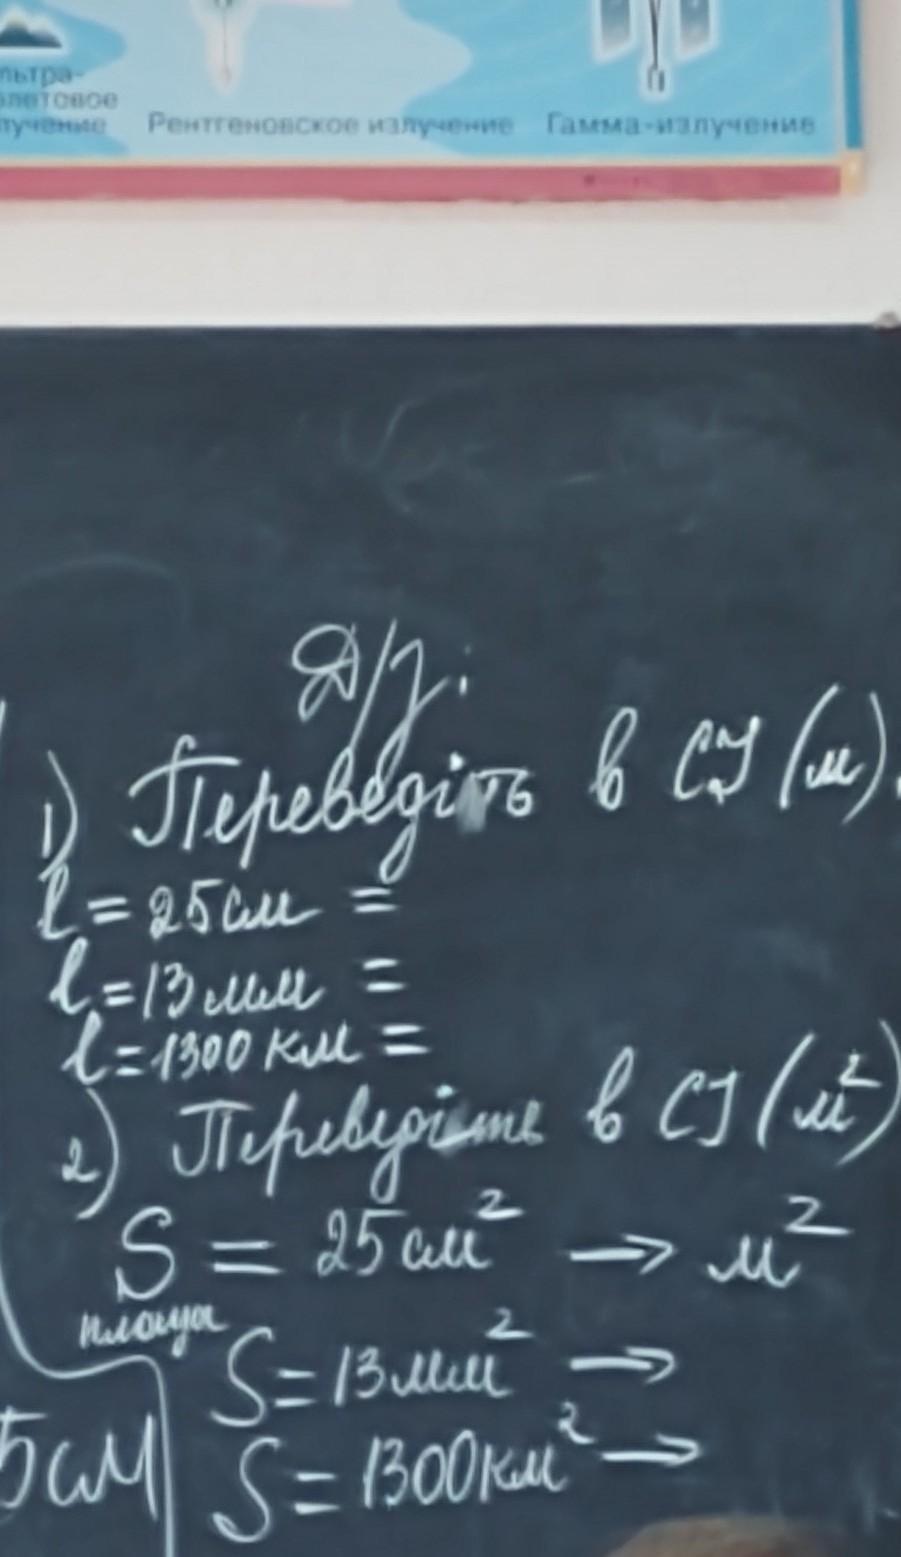 льтра-
олетовое
лучение
Рентгеновское излучение
Гамма-излучение
Д/з.
1) Переведіть в СІ (м).
l = 25 см =
l = 13 мм =
l = 1300 км =
2) Переведіть в СІ (м²)
S = 25 см² → м²
площа
S = 13 мм² →
S = 1300 км² →
5 см